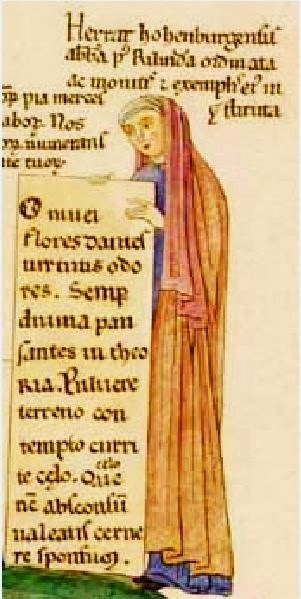 Herrat hohenburgensis
abba p Rilinda ordinata
ac monitis & exemplis ei in
stituta
pia merces
labor. Nos
numerans
ne tuos
O nivei
flores dantes
virtutis odo
res. Semp
divina pau
santes in theo
ria. Pulvere
terreno con
tempto curri
te celo. Que
nc absconsū
valeatis cerne
re sponsum.